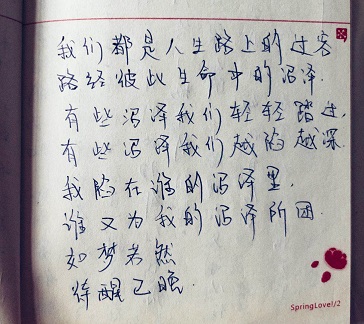 我们都是人生路上的过客
路经彼此生命中的沼泽.
有些沼泽我们轻轻踏过,
有些沼泽我们越陷越深.
我陷在谁的沼泽里.
谁又为我的沼泽所困.
如梦若然
待醒已晚.
SpringLove!/2